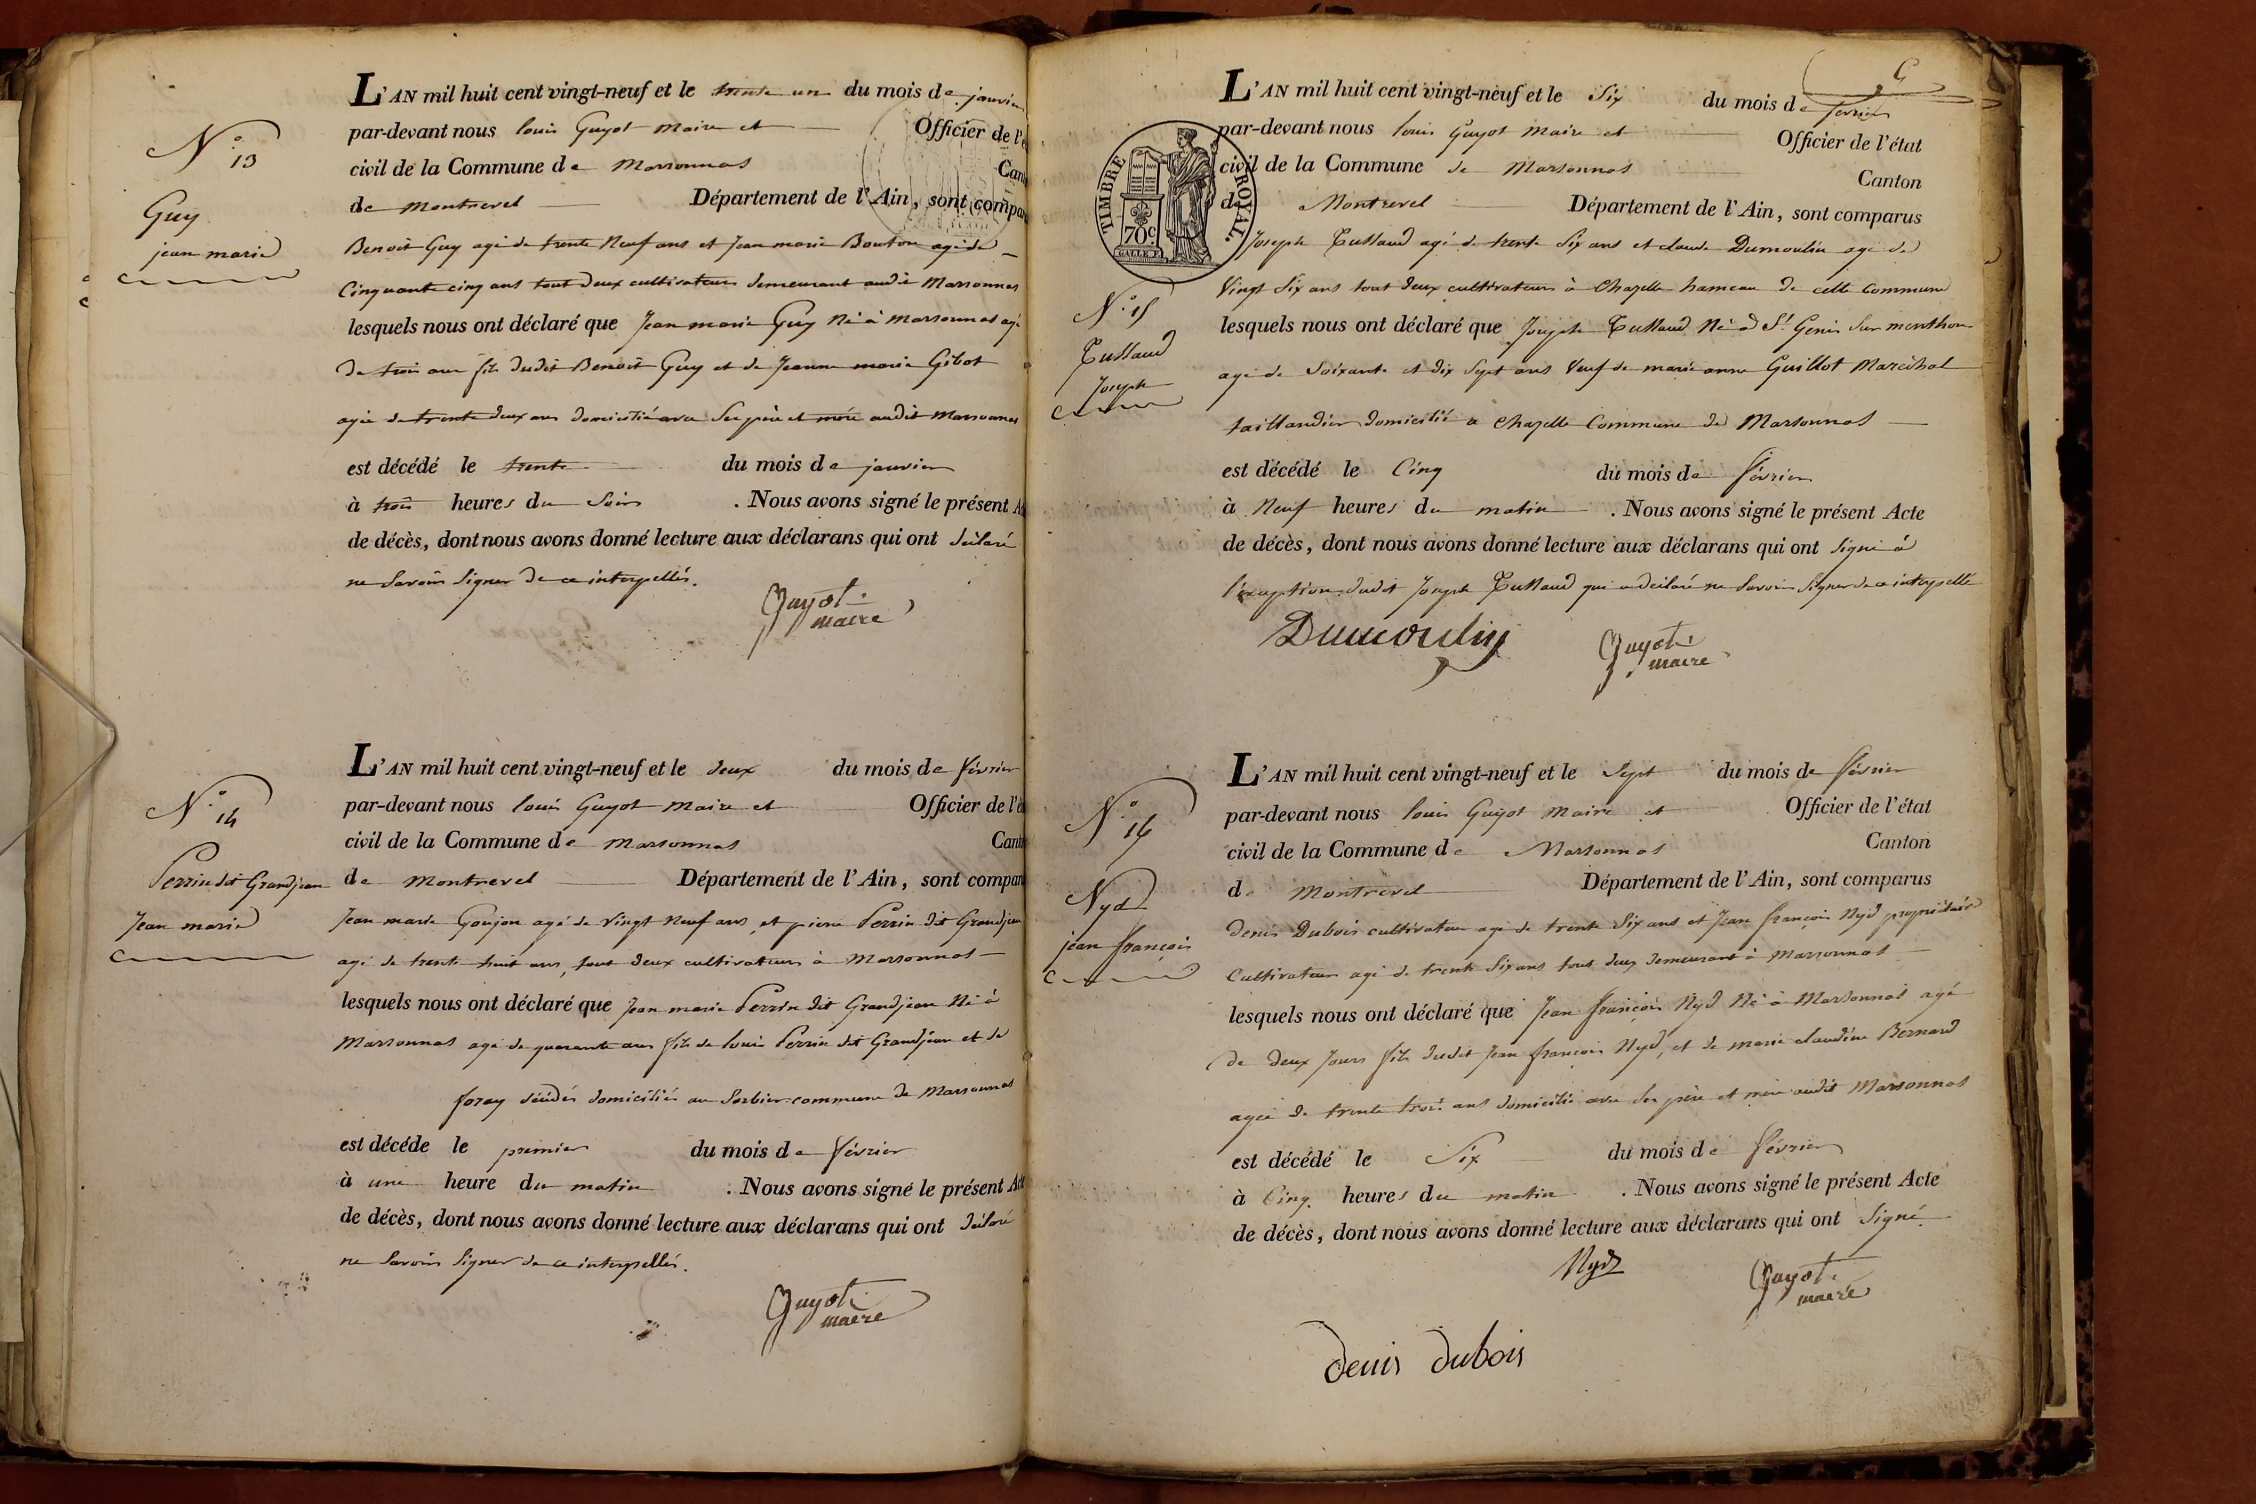 N.o 13
Guy
jean marie
L'AN mil huit cent vingt-neuf et le trente un du mois de janvier
par-devant nous louis Guyot maire et Officier de l'é
civil de la Commune de Marsonnas Cant
de montrevel Département de l'Ain, sont compar
Benoit Guy agé de trente Neuf ans et Jean marie Bouton agé de
Cinquante cinq ans tout deux cultivateurs demeurant audit Marsonnas
lesquels nous ont déclaré que Jean marie Guy Né à Marsonnas agé
de trois ans fils dudit Benoit Guy et de Jeanne marie Gibot
agée de trente deux ans domicilié avec Ses père et mère audit Marsonnas
est décédé le trente du mois de janvier
à trois heures du Soir . Nous avons signé le présent A
de décès, dont nous avons donné lecture aux déclarans qui ont déclaré
ne Savoir Signer de ce interpellés.
Guyot
maire
N.o 14
Perrin dit Grandjean
Jean marie
L'AN mil huit cent vingt-neuf et le deux du mois de février
par-devant nous louis Guyot maire et Officier de l'é
civil de la Commune de Marsonnas Cant
de montrevel Département de l'Ain, sont compar
Jean marie Goujon agé de Vingt Neuf ans, et pierre Perrin dit Grandjean
agé de trente huit ans, tout deux cultivateurs à Marsonnas
lesquels nous ont déclaré que Jean marie Perrin dit Grandjean Né à
Marsonnas agé de quarante ans fils de louis Perrin dit Grandjean et de
foray décédés domiciliés au Sorbier commune de Marsonnas
est décédé le premier du mois de février
à une heure du matin . Nous avons signé le présent Act
de décès, dont nous avons donné lecture aux déclarans qui ont déclaré
ne Savoir Signer de ce interpellés.
Guyot
maire
TIMBRE ROYAL.
70c
N.o 15
Tulland
Joseph
L'AN mil huit cent vingt-neuf et le Six du mois de fevrier
par-devant nous louis Guyot maire et Officier de l'état
civil de la Commune de Marsonnas Canton
de Montrevel Département de l'Ain, sont comparus
Joseph Tulland agé de trente Six ans et claude Dumoulin agé de
Vingt Six ans tout deux cultivateurs à Chapelle hameau de cette Commune
lesquels nous ont déclaré que Joseph Tulland Né à St Genis Sur menthon
agé de Soixante et dix Sept ans Veuf de marie anne Guillot Maréchal
taillandier domicilié à Chapelle Commune de Marsonnas
est décédé le Cinq du mois de février
à Neuf heures du matin . Nous avons signé le présent Acte
de décès, dont nous avons donné lecture aux déclarans qui ont Signé à
l'exception dudit Joseph Tulland qui a déclaré ne Savoir Signer de ce interpellé
Dumoulin
Guyot
maire
N.o 16
Nyd
jean françois
L'AN mil huit cent vingt-neuf et le Sept du mois de février
par-devant nous louis Guyot maire et Officier de l'état
civil de la Commune de Marsonnas Canton
de Montrevel Département de l'Ain, sont comparus
denis Dubois cultivateur agé de trente Six ans et Jean françois Nyd propriétaire
Cultivateur agé de trente Six ans tout deux demeurant à Marsonnas
lesquels nous ont déclaré que Jean françois Nyd Né à Marsonnas agé
de deux Jours fils dudit Jean françois Nyd, et de marie claudine Bernard
agée de trente trois ans domicilié avec Ses père et mère audit Marsonnas
est décédé le Six du mois de février
à Cinq heures du matin . Nous avons signé le présent Acte
de décès, dont nous avons donné lecture aux déclarans qui ont Signé
Nyd
Guyot
maire
denis dubois